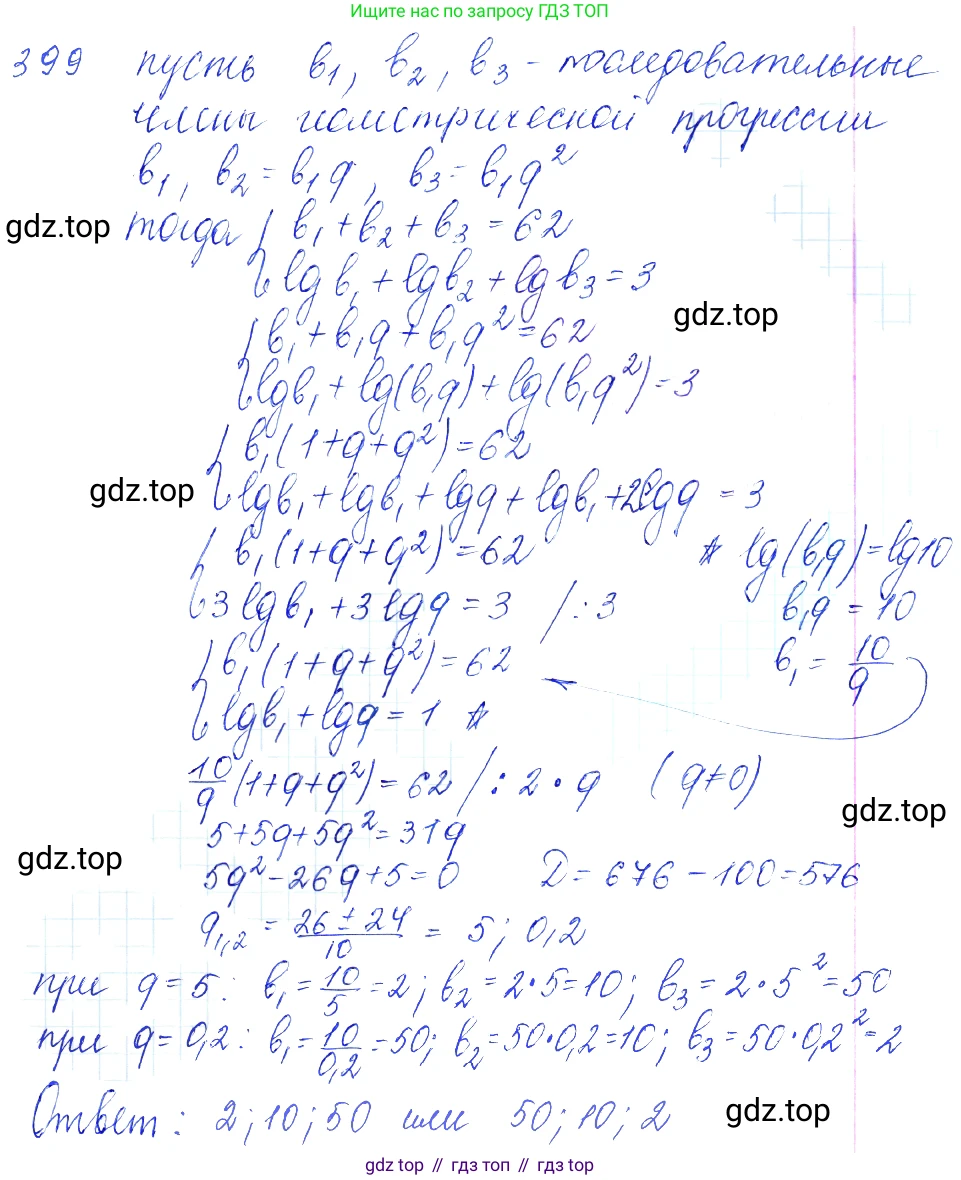 Ищите нас по запросу ГДЗ ТОП
399 пусть b₁, b₂, b₃ - последовательные
члены геометрической прогрессии
b₁, b₂ = b₁q, b₃ = b₁q²
gdz.top тогда { b₁ + b₂ + b₃ = 62
lg b₁ + lg b₂ + lg b₃ = 3
gdz.top
{ b₁ + b₁q + b₁q² = 62
lg b₁ + lg(b₁q) + lg(b₁q²) = 3
{ b₁(1+q+q²) = 62
gdz.top
lg b₁ + lg b₁ + lg q + lg b₁ + 2lg q = 3
{ b₁(1+q+q²) = 62 * lg(b₁q) = lg10
3 lg b₁ + 3 lg q = 3 /:3 b₁q = 10
{ b₁(1+q+q²) = 62 b₁ = 10/q
lg b₁ + lg q = 1 *
10/q (1+q+q²) = 62 /:2·q (q≠0)
gdz.top
5+5q+5q² = 31q
gdz.top
5q² - 26q + 5 = 0 D = 676 - 100 = 576
q₁,₂ = (26 ± 24)/10 = 5; 0,2
при q = 5: b₁ = 10/5 = 2; b₂ = 2·5 = 10; b₃ = 2·5² = 50
при q = 0,2: b₁ = 10/0,2 = 50; b₂ = 50·0,2 = 10; b₃ = 50·0,2² = 2
Ответ: 2; 10; 50 или 50; 10; 2 gdz.top
gdz top // гдз топ // гдз top